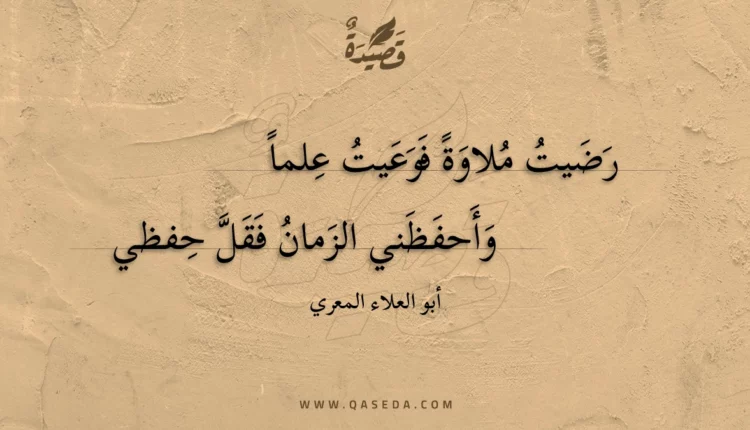 قَصِيدَةٌ
رَضَيتُ مُلاوَةً فَوَعَيتُ عِلماً
وَأَحفَظَني الزَمانُ فَقَلَّ حِفظي
أبو العلاء المعري
WWW.QASEDA.COM